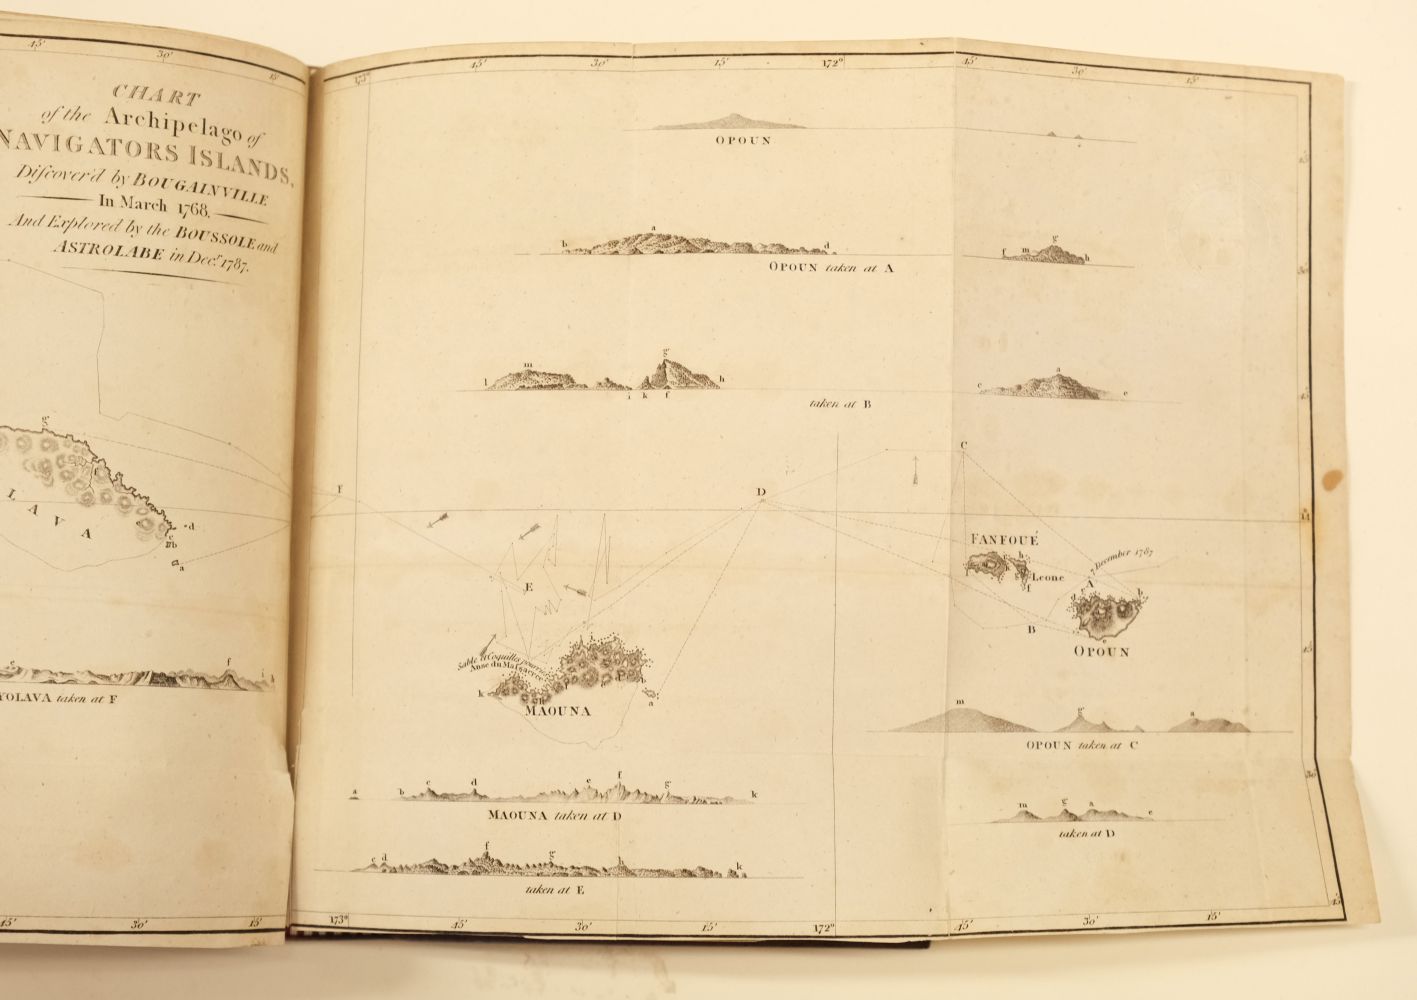 45'
30'
15'
173°
45'
30'
15'
172°
45'
30'
15'
CHART
of the Archipelago of
NAVIGATORS ISLANDS,
Discover'd by BOUGAINVILLE
In March 1768.
And Explored by the BOUSSOLE and
ASTROLABE in Decr. 1787.
OPOUN
15'
b
a
d
OPOUN taken at A
f
m
g
h
30'
l
m
i
k
g
f
h
taken at B
c
a
e
45'
g
LAVA
d
c
b
a
F
E
D
C
14
FANFOUÉ
h
k
g
f
Leone
7 December 1787
A
d
b
e
B
OPOUN
45'
Sable et Coquilles pourries
Anse du Massacre
k
h
i
b
a
MAOUNA
e
f
i
h
YOLAVA taken at F
m
g
a
OPOUN taken at C
a
b
c
d
e
f
g
k
MAOUNA taken at D
30'
m
g
a
e
taken at D
c
d
f
g
h
k
taken at E
45'
45'
30'
15'
173°
45'
30'
15'
172°
45'
30'
15'